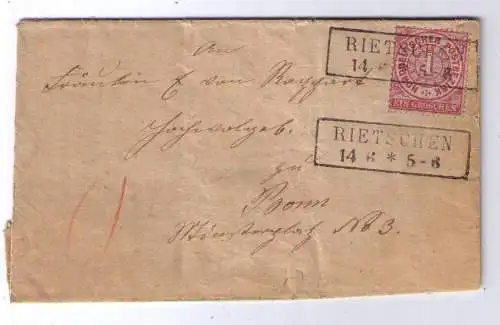 An
Fräulein E von Rappart
Hochwolgeb.
zu
Bonn
Münsterplatz No 3.
RIETSCHEN
14 6 * 5-6
NORDDEUTSCHER POSTBEZIRK
1
EIN GROSCHEN
RIETSCHEN
14 6 * 5-6